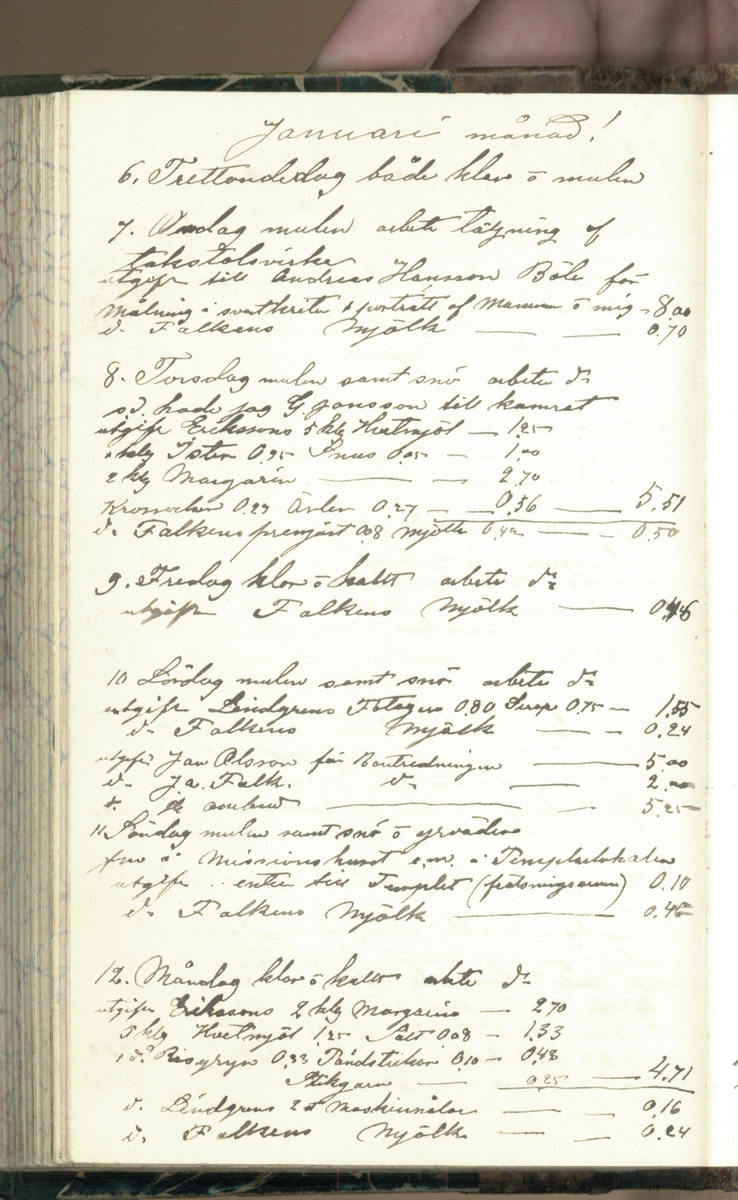 Januari månad!
6. Trettondedag både klar o mulen
7. Onsdag mulen arbete täljning af
takstolsvirke
utgift till Andreas Hansson Böle för
Målning i svartkrita porträtt af Mamma o mig - 8,00
d:o Falkens Mjölk — — 0.70
8. Torsdag mulen samt snö arbete d:o
s.d. hade jag G. Jansson till kamrat
utgift Erikssons 5 klg Hvetmjöl — 1.25
1 klg Ister 0.95 Snus 0.05 — 1.00
2 klg Margarin — 2.70
0.27 — 0.56 — 5.51
d:o Falkens pressjäst 0.8 Mjölk 0.42 — — 0.50
9. Fredag klar o kallt arbete d:o
utgift Falkens Mjölk — 0.46
10 Lördag mulen samt snö arbete d:o
utgift Lindgrens Fotogen 0.80 Sirap 0.75 — 1.55
d:o Falkens Mjölk — — 0.24
utgift Jan Olsson för Boutredningen — 5.00
d:o J.a. Falk. d:o — 2.00
d:o ombud — — 5.25
11 Söndag mulen samt snö o yrväder
fm i Missionshuset e.m. i Templarlokalen
utgift entre till Templet (frälsningsarmen) 0.10
d:o Falkens Mjölk — 0.46
12. Måndag klar o kallt arbete d:o
utgift Erikssons 2 klg Margarin — 2.70
5 klg Hvetmjöl 1.25 Salt 0.08 — 1.33
1 d:o Risgryn 0.33 Tändstickor 0.10 — 0.43
0.25 — 4.71
d:o Lindgrens 2 st Maskinnålar — — 0.16
d:o Falkens Mjölk — — 0.24